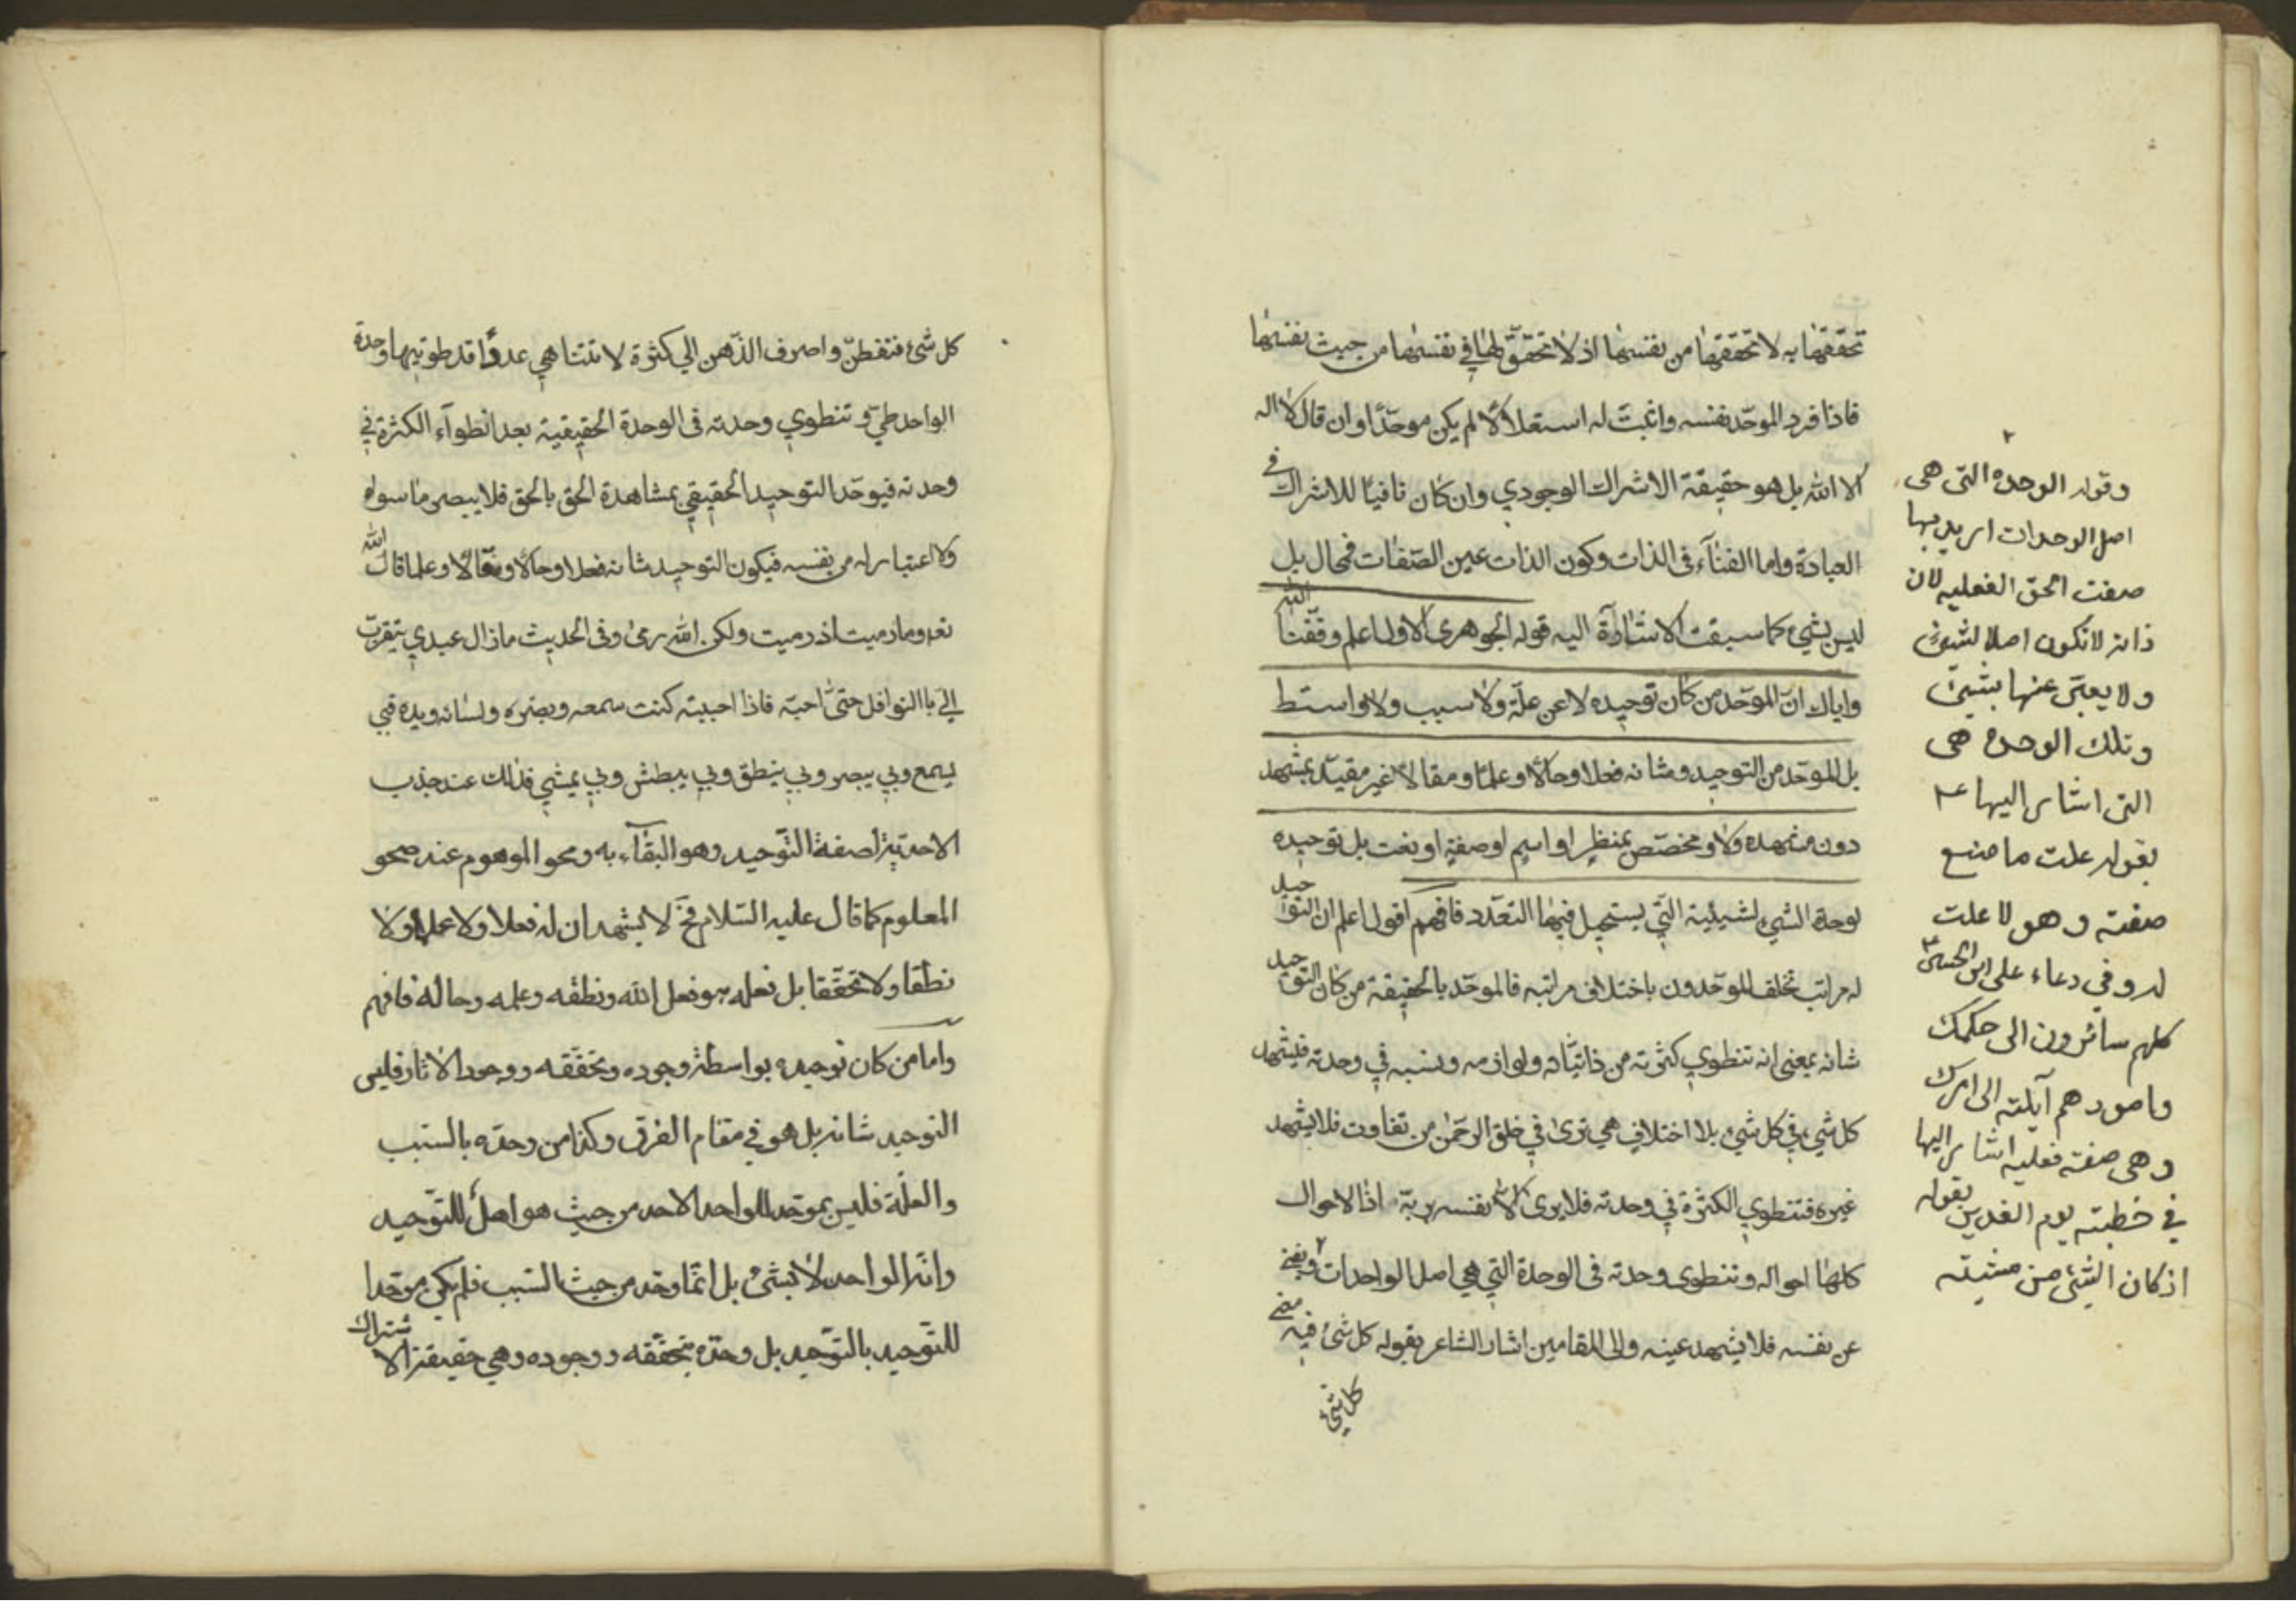 تحققها به لا تحققها من نفسها اذ لا تحقق لها في نفسها من حيث نفسها
فاذا فرد الموحّد نفسه واثبتَ له استقلالًا لم يكن موحّدًا وان قال لا اله
الا الله بل هو حقيقة الاشراك الوجودي وان كان نافيًا للاشراك في
العبادة واما الفنآء فى الذات وكون الذات عين الصّفات فمحال بل
ليس بشيء كما سبقت الاشارة اليه قوله الجوهرى الاول اعلم وفّقنا الله
واياك انّ الموحّد من كان توحيده لا عن علّة ولا سبب ولا واسط
بل الموحّد من التوحيد ومشانه فعلا وحالًا وعلمًا ومقالًا غير مقيّد بمشهد
دون مشهد ولا ومخصّص بمنظرٍ او اسمٍ او صفةٍ او نعت بل توحيده
لوحدة الشيء لشيئية التي يستحيل فيها التعدّد فافهم اقول اعلم ان التوحيد
له مراتب تخلف الموحّدون باختلاف مراتبه فالموحّد بالحقيقة من كان التوحيد
شانه بمعنى انه تنطوي كثرته من ذاتيّاته ولوازمه ونسبه في وحدته فيشهد
كل شيء في كل شيء بلا اختلاف هي ترى في خلق الرحمٰن من تفاوت فلا يشهد
غيره فتنطوي الكثرة في وحدته فلا يرى الا نفسه بربّه اذا الاحوال
كلها احواله وتنطوى وحدته فى الوحدة التي هي اصل الواحدات ٢ ويفنى
عن نفسه فلا يشهد عينه والى المقامين اشار الشاعر بقوله كل شئ فيه معنى
كل شئ
٢
وقوله الوحده التى هى
اصل الوحدات اريد بها
صفت الحق الفعليه لان
ذاته لا تكون اصلا لشيئ
ولا يعبّر عنها بشيئ
وتلك الوحدة هى
التى اشار اليها ع
بقوله علت ما صنع
صفته وهو لا علت
له وفي دعاء على ابن الحسين ع
كلهم سائرون الى حكمك
وامورهم آيلته الى امرك
وهى صفته فعليه اشار اليها
في خطبته يوم الغدير بقوله
اذ كان الشئ من مشيته
كل شئ فتفطّن واصرف الذّهن الي كثرة لا تتناهي عددًا قد طوتيها وحدة
الواحد طيّ و تنطوي وحدته فى الوحدة الحقيقية بعد انطوآء الكثرة في
وحدته فيوحّد التوحيد الحقيقي بمشاهدة الحق بالحق فلا يبصر ما سواه
ولا اعتبار له من نفسه فيكون التوحيد شانه فعلا وحالًا ومقالًا وعلما قال الله
تعه وما رميت اذ رميت ولكن الله رمى وفى الحديث ماذال عبدي يتقرب
الي باالنوافل حتى احبّه فاذا احببته كنت سمعه وبصره ولسانه ويده فبي
يسمع وبي يبصر وبي ينطق وبي يبطش وبي يمشي فذلك عند جذب
الاحديّة لصفة التّوحيد وهو البقآء به ومحو الموهوم عند صحو
المعلوم كما قال عليه السّلام فح لا يشهد ان له فعلا ولا عملا ولا
نطقا ولا تحقّقا بل فعله هو فعل الله ونطقه وعلمه وحاله فافهم
واما من كان توحيده بواسطة وجوده وتحقّقه ووجود الآثار فليس
التوحيد شانه بل هو في مقام الفرق وكذا من وحده بالسّبب
والعلّة فليس بموحّد للواحد الاحد من حيث هو اهل للتّوحيد
وانّه الواحد لا بشئ بل انّما وحّد من حيث السّبب فلم يكن موحّدا
للتّوحيد بالتّوحيد بل وحّده بتحقّقه ووجوده وهي حقيقة الاشتراك